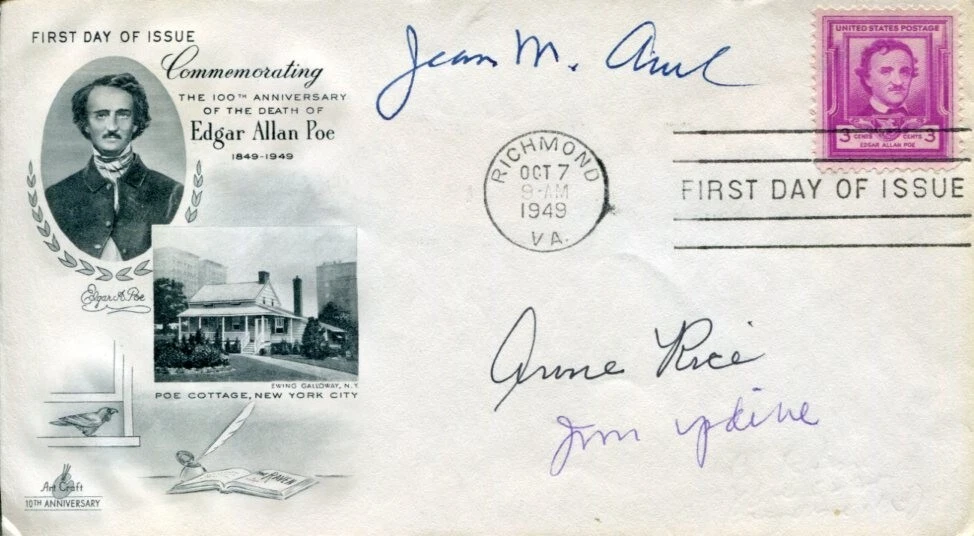 FIRST DAY OF ISSUE
Commemorating
THE 100TH ANNIVERSARY
OF THE DEATH OF
Edgar Allan Poe
1849-1949
Edgar A. Poe
EWING GALLOWAY, N.Y.
POE COTTAGE, NEW YORK CITY
THE RAVEN
Art Craft
10TH ANNIVERSARY
Jean M. Auel
RICHMOND
OCT 7
9-AM
1949
VA.
UNITED STATES POSTAGE
3 CENTS CENTS 3
EDGAR ALLAN POE
FIRST DAY OF ISSUE
Anne Rice